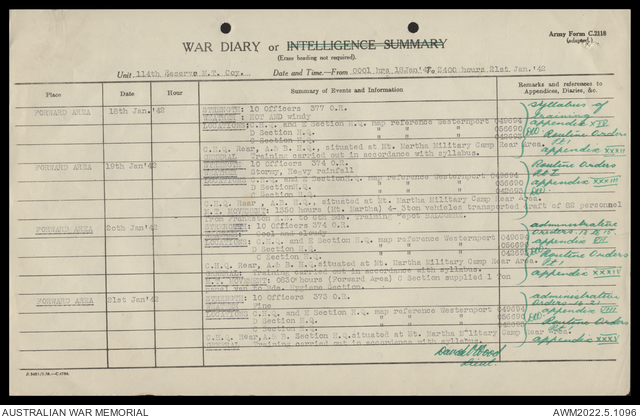 Army Form C.2118
(adapted.)
WAR DIARY or INTELLIGENCE SUMMARY
(Erase heading not required).
Unit 114th Reserve M.T. Coy. Date and Time—From 0001 hrs 18Jan'42 To 2400 hours 21st. Jan.'42
Place Date Hour Summary of Events and Information Remarks and references to Appendices, Diaries, &c.
FORWARD AREA 18th Jan.'42 STRENGTH: 10 Officers 377 O.R.
WEATHER: HOT AND windy
LOCATIONS: C.H.Q. and E Section H.Q. map reference Westernport 049694
D Section H.Q. " " " 056690
C Section H.Q. " " "
C.H.Q. Rear, A & B H.Q., situated at Mt. Martha Military Camp Rear Area.
GENERAL Training carried out in accordance with syllabus.
Syllabus of
Training
appendix
Routine Orders
Pt 1
appendix XXXII
FORWARD AREA 19th Jan.'42 STRENGTH: 10 Officers 374 O.R.
WEATHER: Stormy, Heavy rainfall
LOCATIONS: C.H.Q. and E Section H.Q. map reference Westernport 049694
D Section H.Q. " " " 056690
C Section H.Q. " " "
C.H.Q. Rear, A & B H.Q., situated at Mt. Martha Military Camp Rear Area.
M.T. MOVEMENT: 1350 hours (Mt. Martha) 4- 3ton vehicles transported draft of 52 personnel
from
Routine Orders
Pt 1
appendix XXXIII
FORWARD AREA 20th Jan'42 STRENGTH: 10 Officers 374 O.R.
WEATHER: Cool and cloudy
LOCATIONS: C.H.Q. and E Section H.Q. map reference Westernport 049694
D Section H.Q. " " " 056690
C Section H.Q. " " "
C.H.Q. Rear, A & B H.Q. situated at Mt. Martha Military Camp Rear Area.
GENERAL: Training carried out in accordance with syllabus.
M.T. MOVEMENT: 0830 hours (Forward Area) C Section supplied 1 Ton
panel van to Bde. Hygiene Section.
administrative
Orders
appendix VII
Routine Orders
Pt 1
appendix XXXIV
FORWARD AREA 21st Jan'42 STRENGTH: 10 Officers 373 O.R.
WEATHER: Fine
LOCATIONS: C.H.Q. and E Section H.Q. map reference Westernport 049694
D Section H.Q. " " " 056690
C Section H.Q. " " "
C.H.Q. Rear, A & B. Section H.Q. situated at Mt. Martha Military Camp Rear Area.
GENERAL Training carried out in accordance with syllabus.
administrative
Orders
appendix VIII
Routine Orders
Pt 1
appendix XXXV
Lieut.
AUSTRALIAN WAR MEMORIAL AWM2022.5.1096